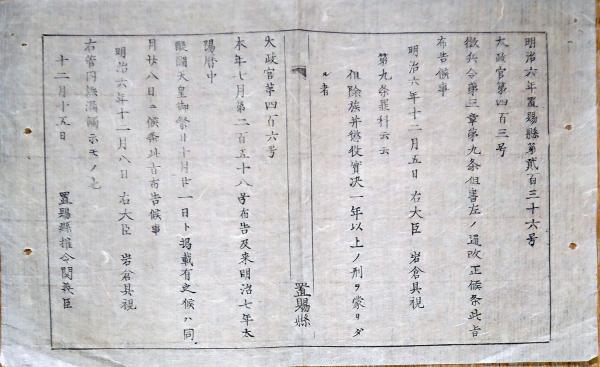 明治六年置賜縣第貳百三十六号
太政官第四百三号
徴兵令第三章第九条但書左ノ通改正候条此旨
布告候事
明治六年十二月五日 右大臣 岩倉具視
第九条罪科云云
但除族并懲役實决一年以上ノ刑ヲ蒙リタ
ル者
置賜縣
太政官第四百六号
本年七月第二百五十八号布告及来明治七年太
陽暦中
醍醐天皇御祭日十月廿一日ト掲載有之候ハ同
月廿八日ニ候条此旨布告候事
明治六年十二月八日 右大臣 岩倉具視
右管内無漏觸示モノ也
十二月十五日 置賜縣権令関義臣